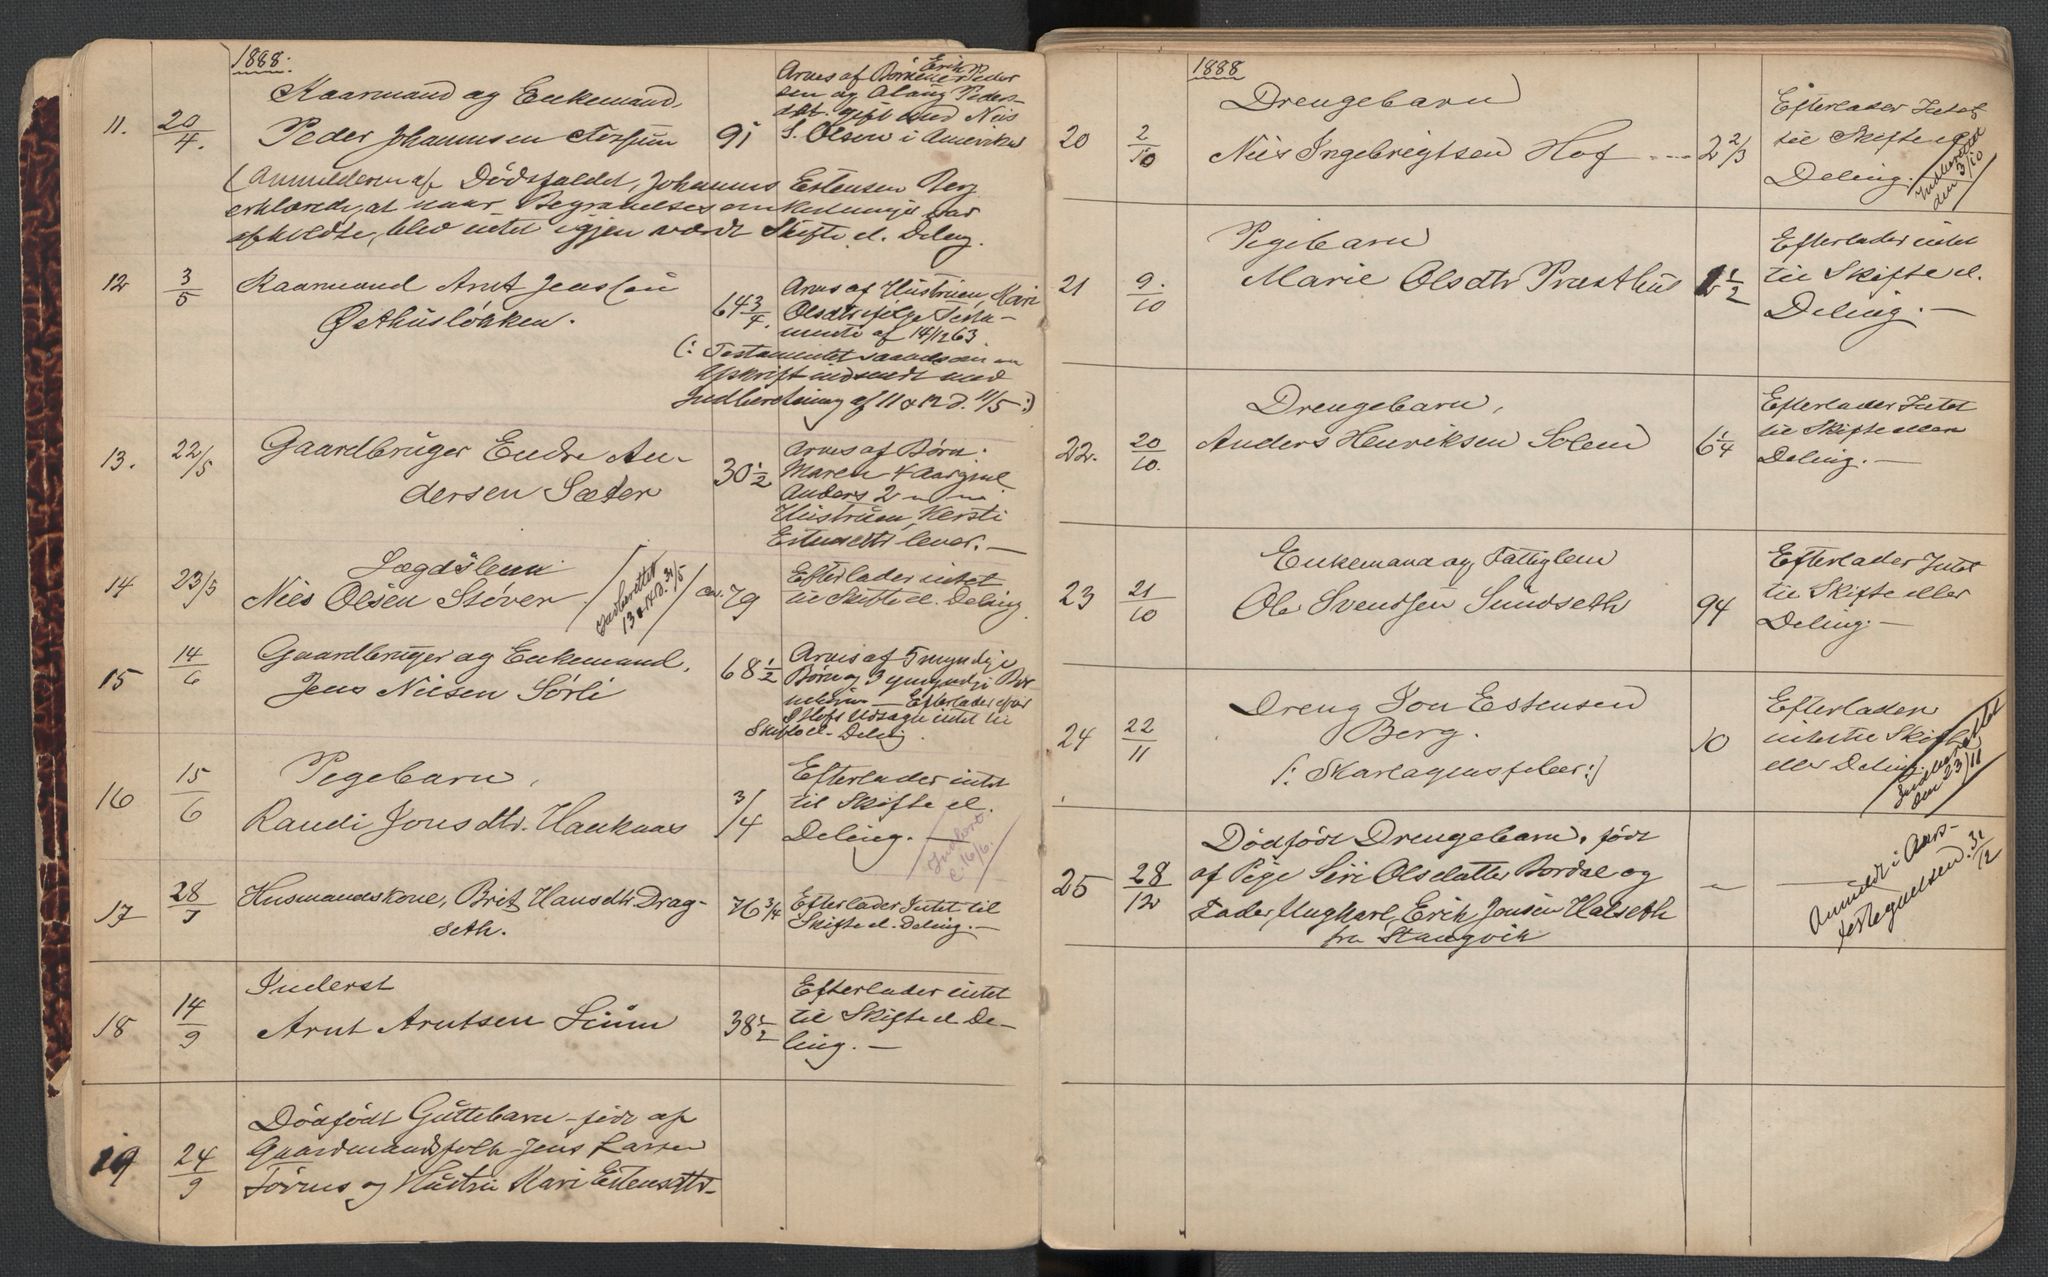 1888.
11. 20/4. Kaarmand og Enkemand,
Peder Johannsen
91
Arves af Børnene Erik Peder
sen og Peders-
dtr. gift med Nils
S. Olsen i Amerika
(Anmelderen af Dødsfaldet, Johannes Estensen Berg
erklærede, at naar Begravelses omkostninger var
afholdte, blev intet igjen værdt Skifte el. Deling.
12 3/5 Kaarmand Arnt Jenssen
Østhusløkken.
64 3/4.
Arves af Hustruen, Mari
Olsdtr ifølge Testa-
mente af 14/12 63.
(: Testamentet saadsom en
Afskrift indsendt med
Indberetning af 11 & 12 d. 11/5 :)
13. 22/5 Gaardbruger Endre An-
dersen Sæter
30 1/2
Arves af Børn:
Maren 4 Aar gml
Anders 2 " "
Hustruen, Kersti
Estensdtr lever. —
14 23/5 Lægdslem
Nils Olsen Støver
Indberettet
13 & 14 d. 31/5
ca. 79
Efterlader intet
til Skifte el. Deling.
15 14/6 Gaardbruger og Enkemand,
Jens Nilsen Sørli
68 1/2
Arves af 5 myndige
Børn og 3 umyndige Bør-
nebørn — Efterlader efter
Hofs Udsagn intet til
Skifte el. Deling.
16 15/6 Pigebarn,
Randi Jonsdtr. Hauknæs
3/4
Efterlader intet
til Skifte el.
Deling.
Indber.
d. 16/6.
17 28/7 Husmandskone, Brit Hansdtr Drag-
seth.
76 3/4
Efterlader Intet til
Skifte el. Deling. —
18 14/9 Inderst
Arnt Arntsen
38 1/2
Efterlader intet
til Skifte el De-
ling. —
19 24/9 Dødfødt Guttebarn — født af
Gaardmandsfolk Jens Larsen
og Hustru Mari Estensdtr.
1888
20 2/10 Drengebarn
Nils Ingebrigtsen Hof
2 2/3
Efterlader Intet
til Skifte el
Deling.
Indberettet
den 3/10
21 9./10 Pigebarn
Marie Olsdtr Præsthus
1/2
Efterlader intet
til Skifte el.
Deling. —
22. 20/10. Drengebarn,
Anders Henriksen Solem
6 1/4
Efterlader Intet
til Skifte eller
Deling. —
23 21/10 Enkemand og Fattiglem
Ole Svendsen Sundseth
94
Efterlader Intet
til Skifte eller
Deling. —
24 22/11 Dreng Jon Estensen
Berg.
/: Skarlagensfeber :/
10
Efterlader
intet til Skifte
eller Deling.
Indberettet
den 23/11
25 28/12 Dødfødt Drengebarn, født
af Pige Siri Olsdatter Bordal og
Fader Ungkarl, Erik Jonsen Halseth
fra Stangvik
—
Anmeldt i Aars-
fortegnelsen 31/12